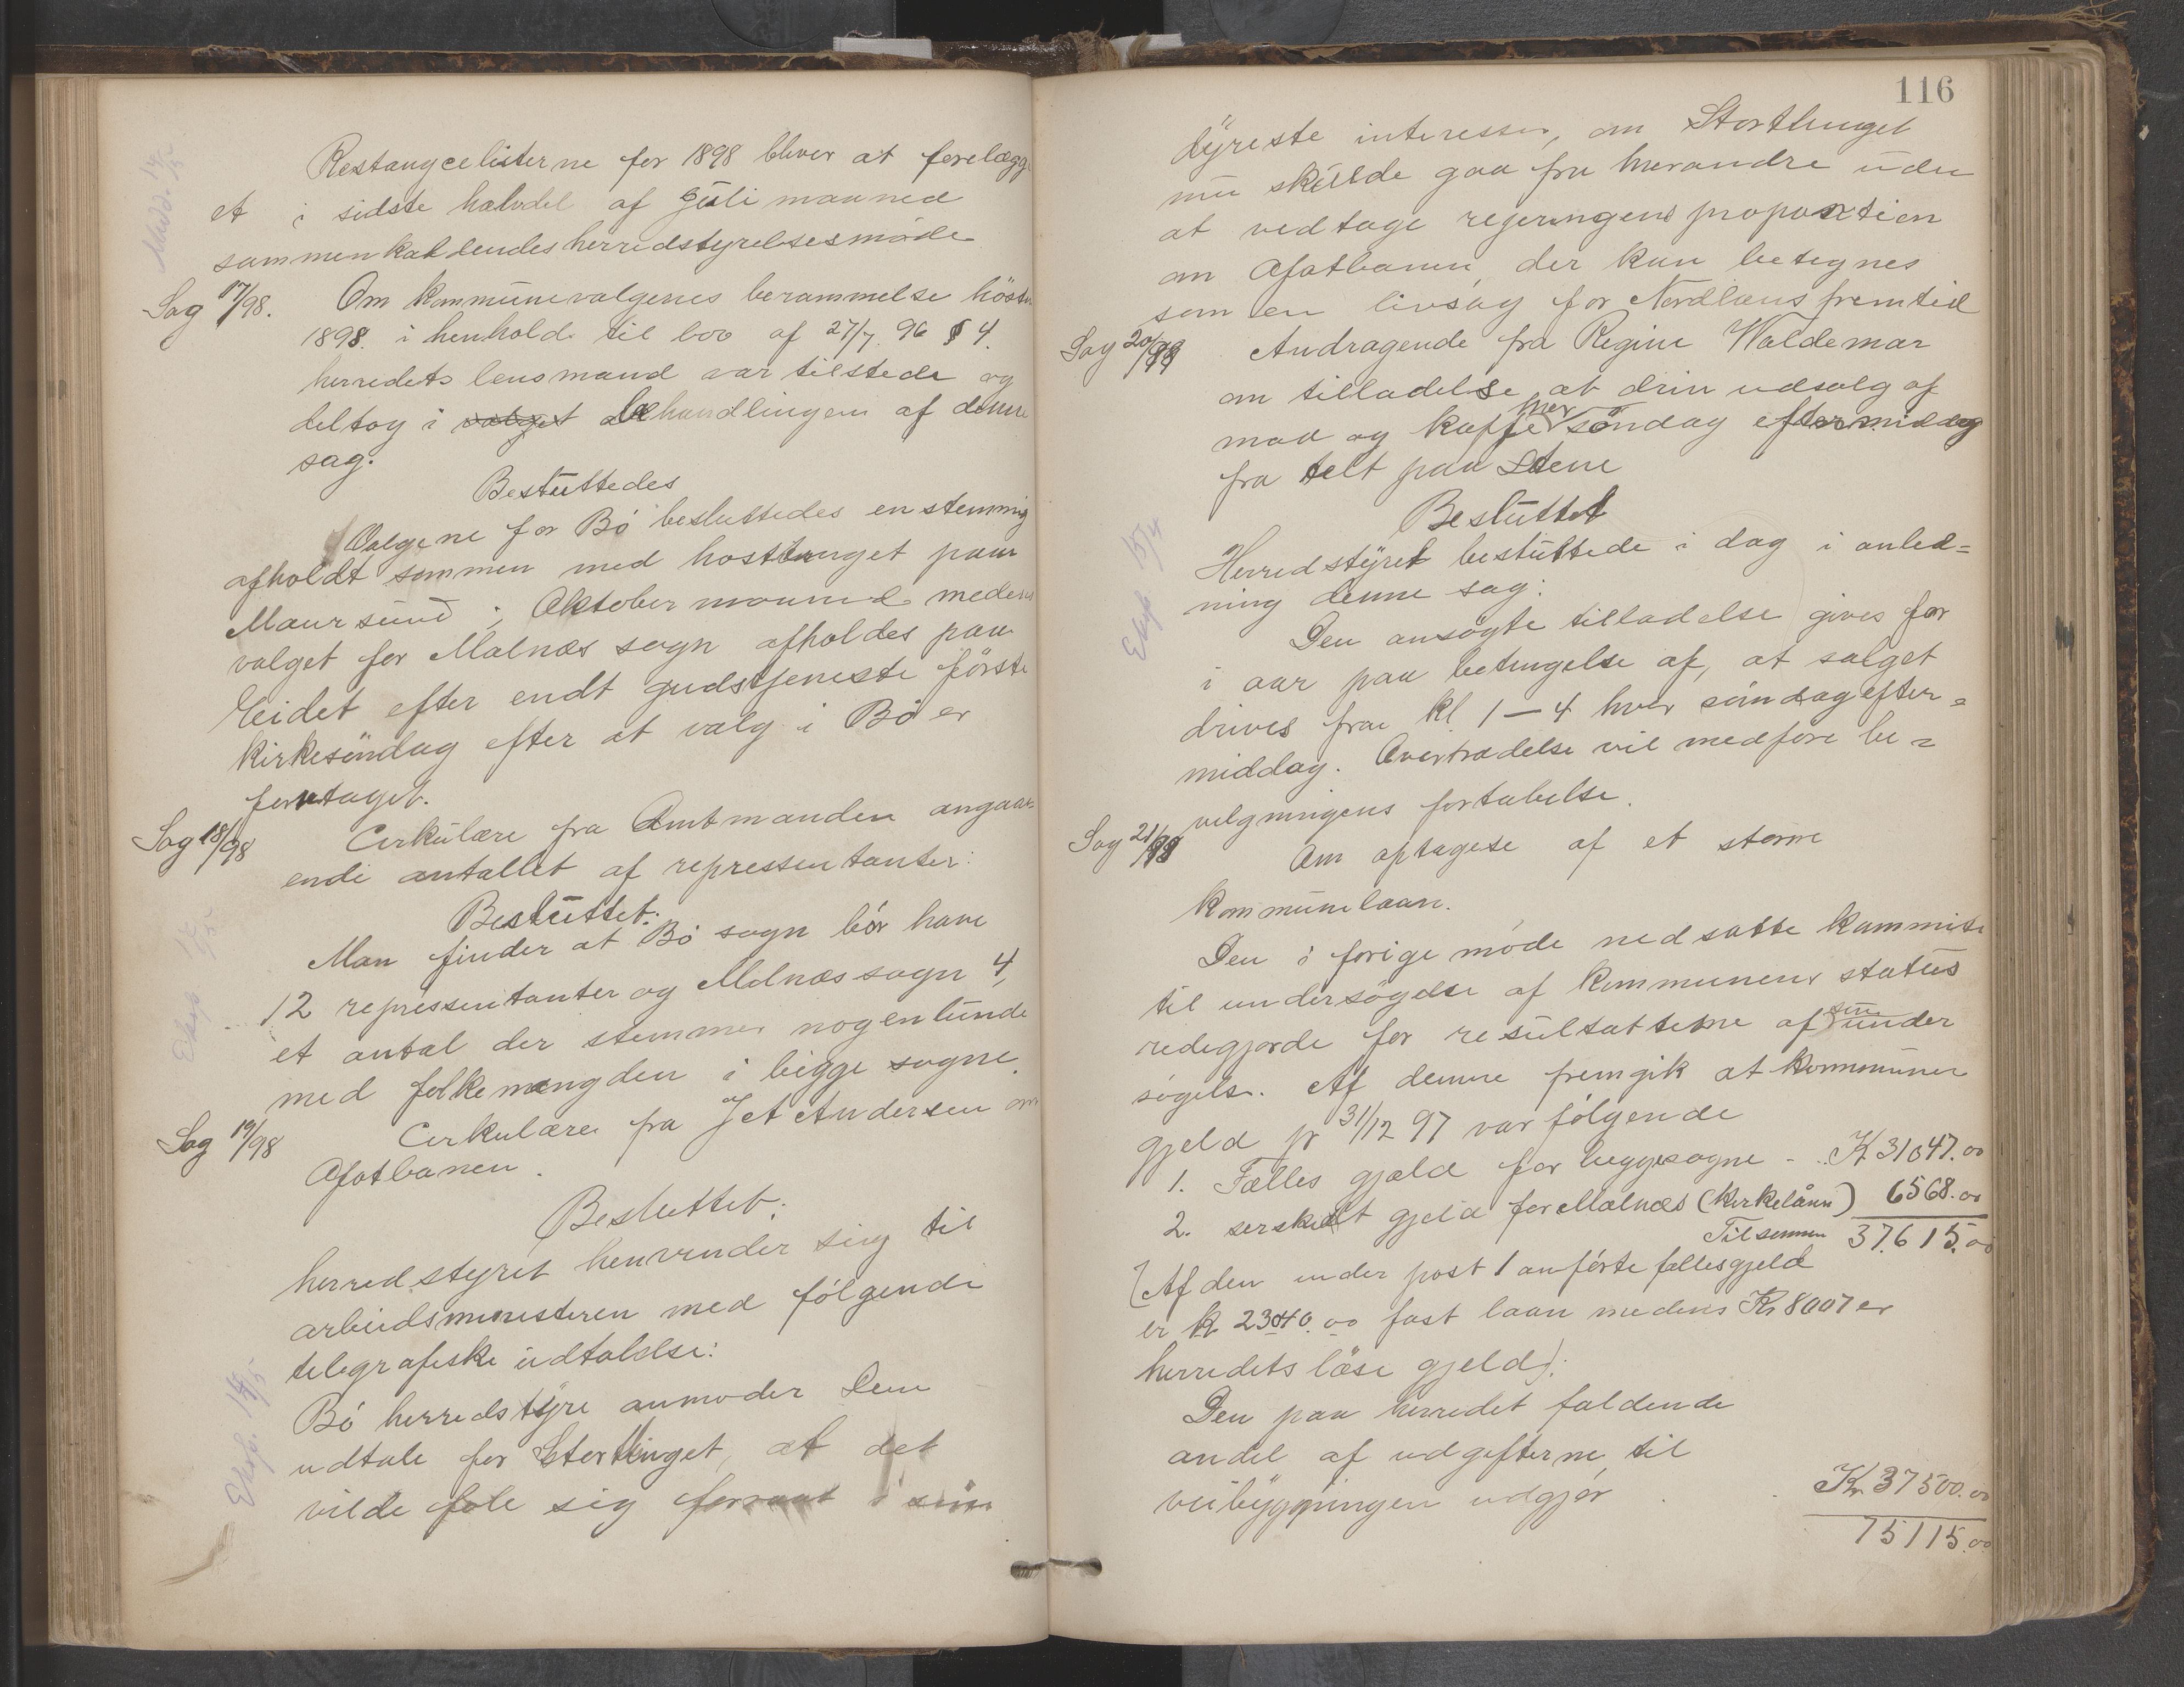 Restancelisterne for 1898 bliver at forelægg
et i sidste halvdel af Juli maaned
sammenkaldendes herredstyrelsesmöde
Sag 17/98. Om kommunevalgenes berammelse hösten
1898. i henhold til lov af 27/7 96 § 4.
herredets lensmand var tilstede og
deltog i valget behandlingen af denne
sag.
Besluttedes
Valgene for Bö besluttedes enstemmig
afholdt sammen med hösttinget paa
Maursund i Oktober maaned medens
valget for Malnæs sogn afholdes paa
Eidet efter endt gudstjeneste förste
kirkesöndag efter at valg i Bö er
foretaget.
Sag 18/98 Cirkulære fra Amtmanden angaa-
ende antallet af repressentanter:
Besluttet:
Man finder at Bö sogn bör have
12 repressentanter og Malnæs sogn 4,
et antal der stemmer nogenlunde
med folkemængden i begge sogne.
Sag 19/98 Cirkulære fra Jet Andersen om
Ofotbanen.
Besluttet:
herredstyret henvender sig til
arbeidsministeren med følgende
telegrafiske udtalelse:
Bö herredstyre anmoder Dem
udtale for Stortinget, at det
vilde føle sig forraat i sine
116
dyreste interesser, om Storthinget
nu skulde gaa fra hverandre uden
at vedtage regjeringens proposition
om Ofotbanen, der kun betegnes
som en livsag for Nordlans fremtid
Sag 20/98 Andragende fra Regine Waldemar
om tilladelse at drive udsalg af
mad og kaffe hver söndag eftermiddag
fra telt paa Stene
Besluttet
Herredstyret besluttede i dag i anled=
ning denne sag:
Den ansögte tilladelse gives for
i aar paa betingelse af, at salget
drives fra kl 1 — 4 hver söndag efter=
middag. Overtrædelse vil medføre be=
vilgningens fortabelse.
Sag 21/98 Om optagelse af et större
kommunelaan.
Den i forige möde nedsatte kommite
til undersögelse af kommunens status
redegjorde for resultatterne af sine under
sögels. Af denne fremgik at kommunen
gjeld pr 31/12 97 var følgende
1. Fælles gjæld for beggesogne - . K 31047.00
2. serskilt gjeld for Malnæs (kirkelånn) 6568.00
Tilsammen 37.615.00
(Af den under post 1 anførte fællesgjeld
er k 23040.00 fast laan medens Kr 8007 er
herredets löse gjeld).
Den paa herredet faldende
andel af udgifterne til
veibygningen udgjør . . Kr. 37500.00
75115.00
Exp. 14/5
Exp. 15/4